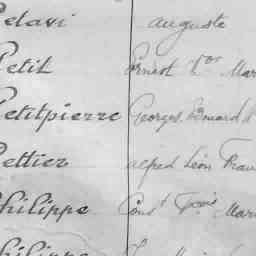 Pelavi Auguste
Petit Ernest Vor Mar
Petitpierre Georges Edouard
Pettier Alfred Léon Fran
Philippe Const Fçois Mari
Philippe